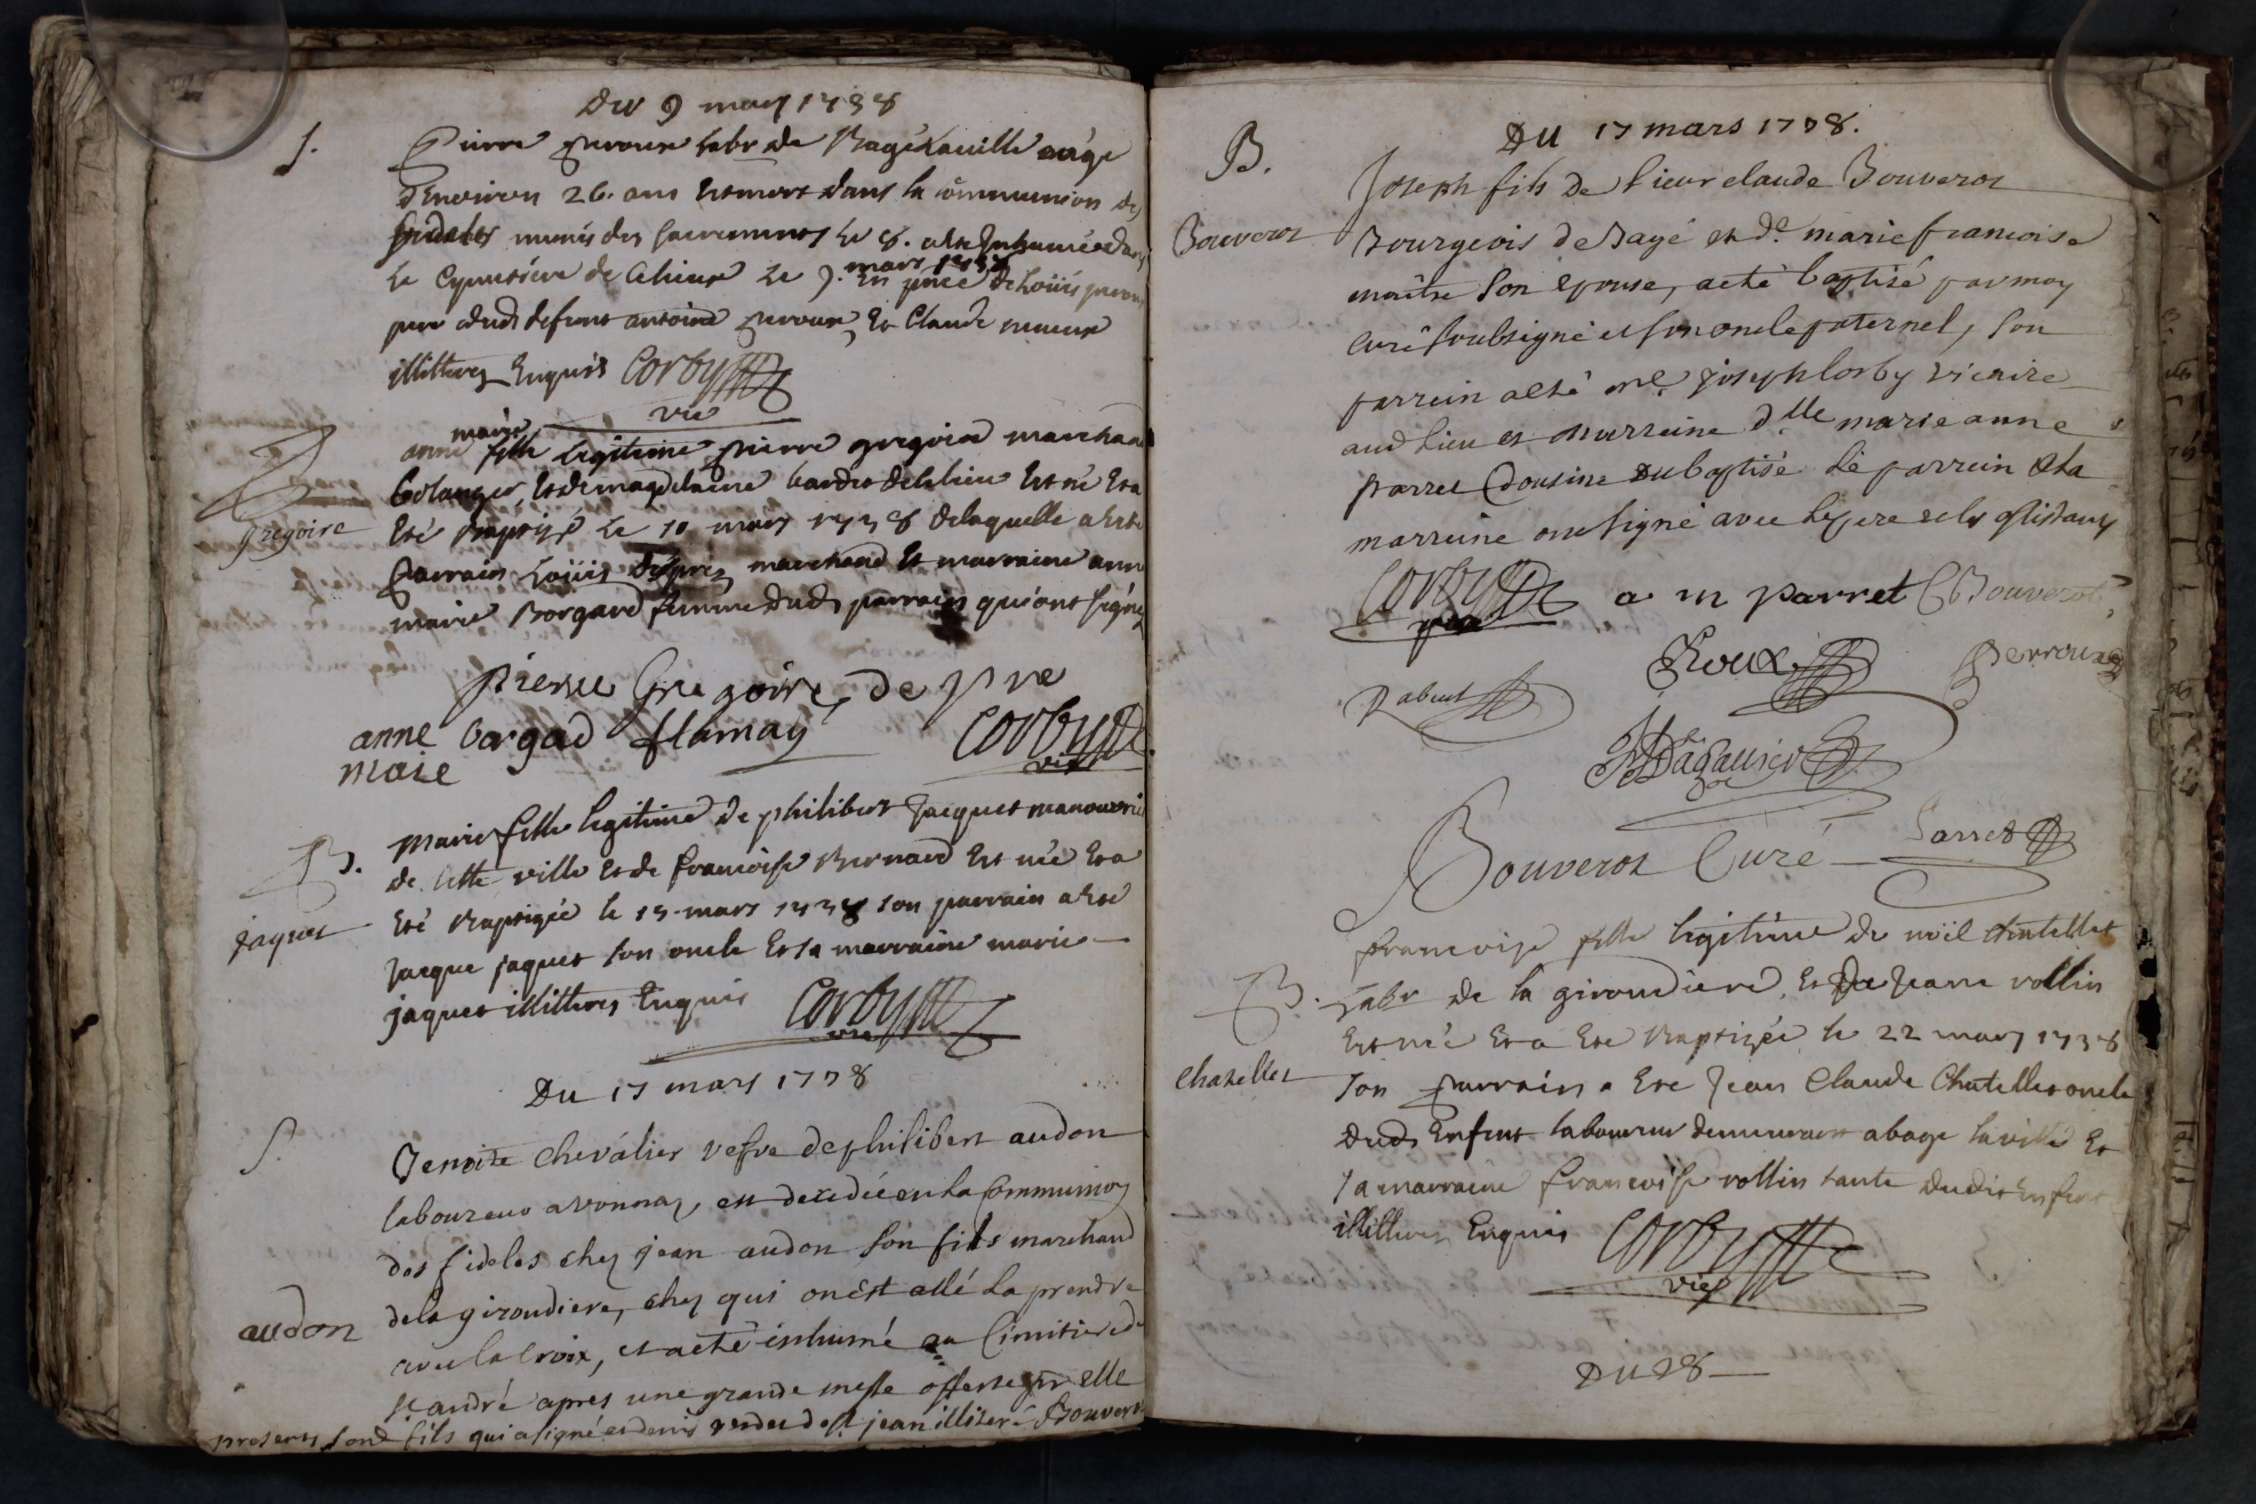 Du 9 mars 1738
S.
Pierre perroux labr de Bagé la ville aagé
d'Environ 26. ans Est mort dans la communion des
fideles munis des sacrements le 8. et a Esté Inhumé dans
Le Cymetiere de Ceans Le 9. mars 1738 En pñce de Loüis perroux
pere dud defunt antoine perroux Et Claude
illitterez Enquis Corby
vic
B
Gregoire
anne marie fille Legitime pierre gregoire marchand
bolanger, Et de magdelaine de ce lieu Est né Et a
Eté Baptisé Le 10 mars 1738 de laquelle a Esté
parrain Loüis marchand Et marraine anne
marie Borgard femme dud parrain qui ont signez
pierre Gregoire, de pre
anne bargad flamay Corby
marie vic
B.
jaquet
Marie fille legitime de philibert Jacquet manouvrier
de cette ville Et de francoise Bernard Est née Et a
Eté Baptizée le 15 mars 1738 son parrain a Esté
Jacque jaquet son oncle Et sa marraine marie
jaquet illitteres Enquis Corby
vic
Du 17 mars 1738
S.
audon
Benoite Chevalier vefve de philibert audon
laboureur a vonnaz, est decedée en la Communion
des fideles chez jean audon son fils marchand
de la giroudiere, chez qui on est allé la prendre
avec la Croix, et a eté inhumé au Cimitiere de
st andré apres une grande messe offerte pr elle
presents son d fils qui a signé et denis jean illiteré Bouverot
Du 17 mars 1738.
B.
Bouverot
Joseph fils de sieur claude Bouverot
Bourgeois de Bagé et de. marie francoise
maître son epouse, a eté baptisé par moy
curé soubsigné et son oncle paternel, son
parrein a eté mre joseph Corby vicaire
aud lieu et marreine dlle marie anne
parret Cousine du baptisé le parrein et la
marreine ont signé avec le pere et les assistants
Corby a m parret C Bouverot
vic
Roux perroux
Rabut
Bouverot Curé parret
B.
Chatellet
francoise fille legitime de noël Chatellet
labr de la giroudiere, Et de Jeane vollin
Est née Et a Eté Baptizée le 22 mars 1738
son parrain a Eté Jean Claude Chatellet oncle
dud Enfent laboureur demeurant a bage la ville Et
sa marraine francoise vollin tante dudit Enfent
illitteres Enquis Corby
vic
Du 28